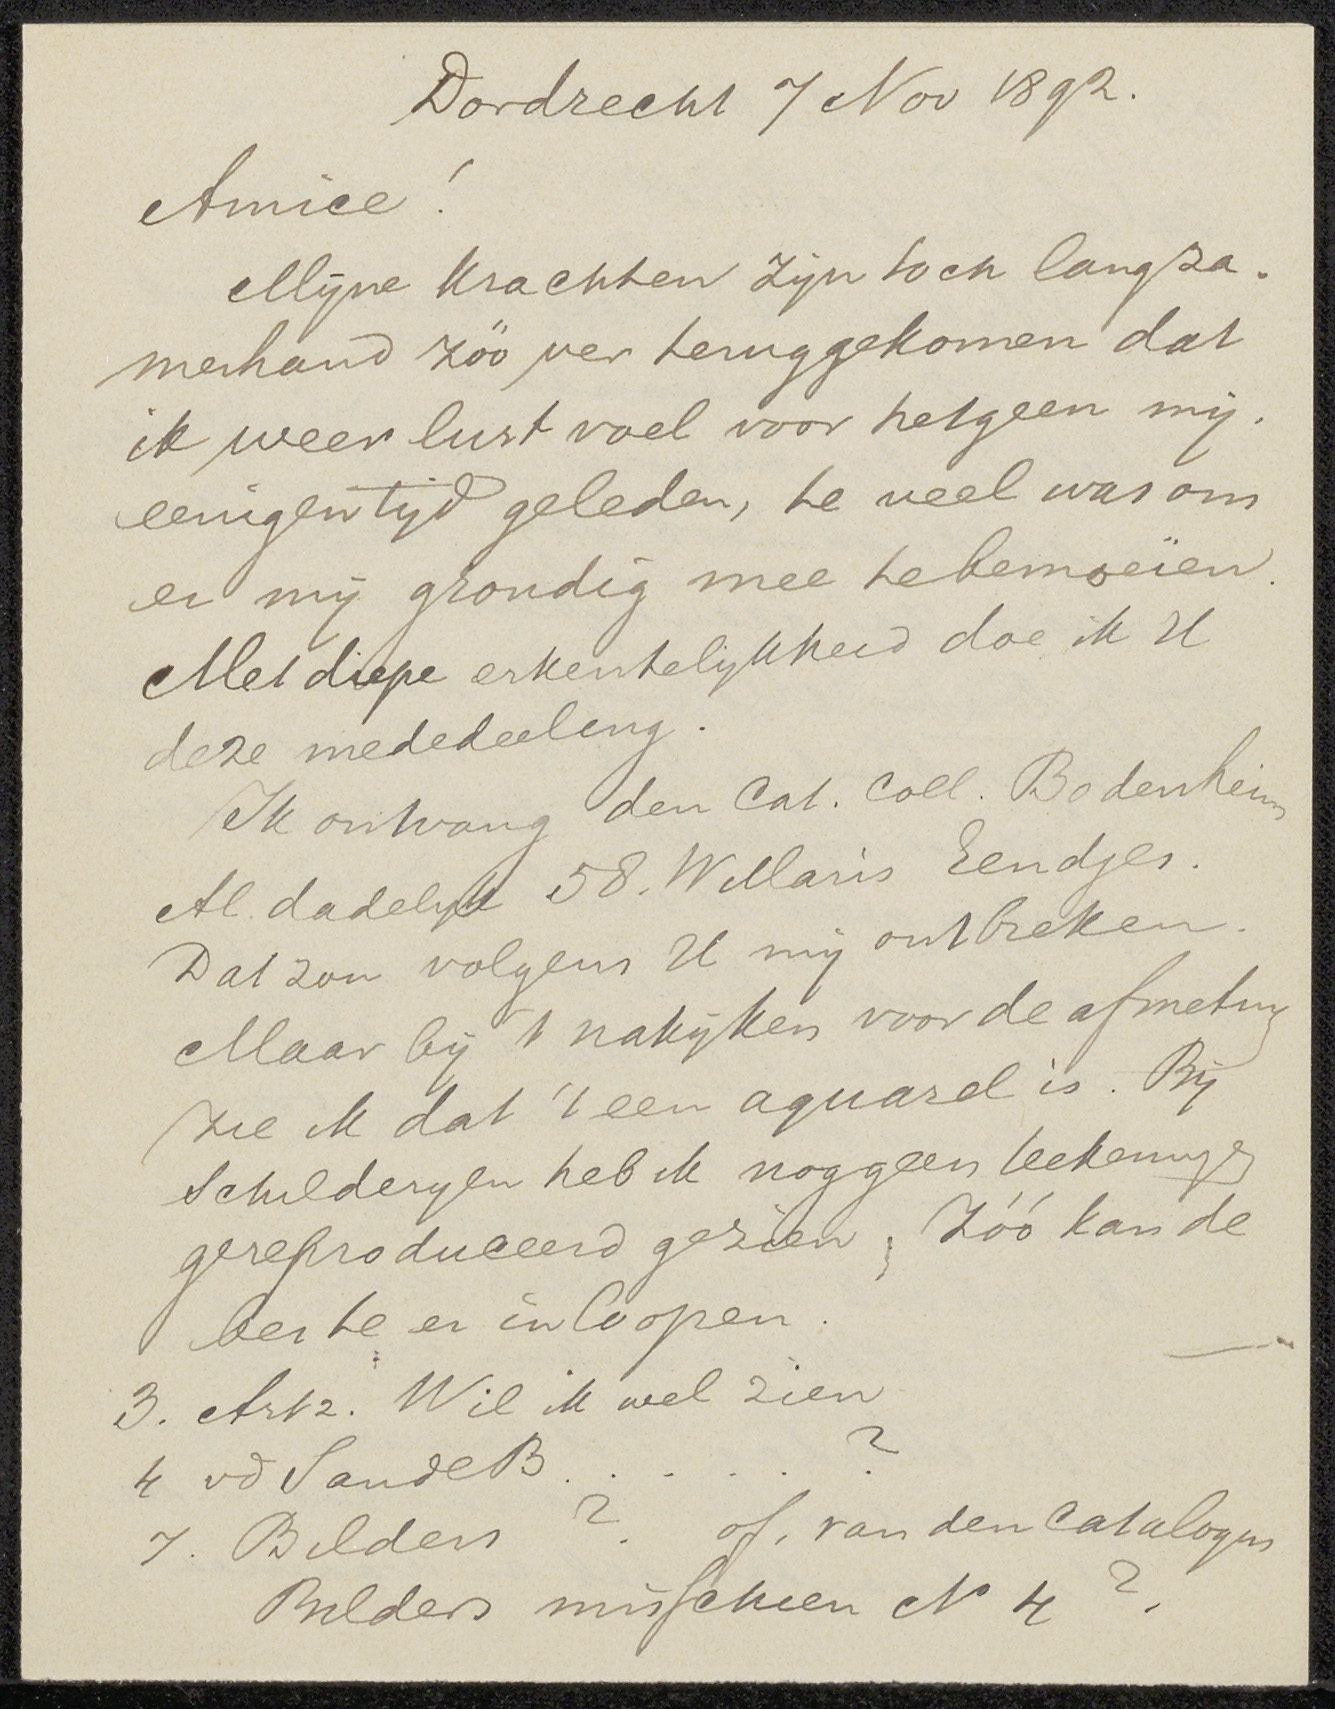 Dordrecht 7 Nov 1892.
Amice!
Mijne krachten zijn toch langza-
merhand zóó ver teruggekomen dat
ik weer lust voel voor hetgeen mij,
eenigen tijd geleden, te veel was om
er mij grondig mee te bemoeïen.
Met diepe erkentelijkheid doe ik U
deze mededeeling.
Ik ontvang den Cat. Coll. Bodenheim
Al dadelijk 58. W Maris Eendjes.
Dat zou volgens U mij ontbreken.
Maar bij 't nakijken voor de afmeting
zie ik dat 't een aquarel is. Bij
Schilderyen heb ik nog geen teekeninge
gereproduceerd gezien; Zóó kan de
beste er in loopen.
3. Artz. Wil ik wel zien
4 vd Sande B. . . . . ?
7. Bilders ? of, van den Catalogus
Bilders misschien N 4 ?.